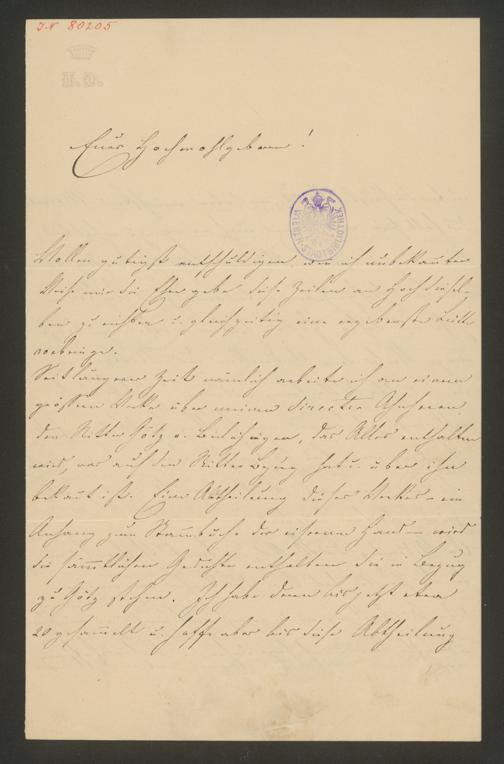 J.N. 80205
Euer Hochwohlgeboren!
WIENER STADTBIBLIOTHEK
Wollen gütigst entschuldigen, wenn ich unbekannter
Weise mir die Ehre gebe diese Zeilen an Hochdesel-
ben zu richten u. gleichzeitig eine ergebenste Bitte
vorbringe.
Seit längerer Zeit nämlich arbeite ich an einem
grössern Werke über meinen directen Ahnherrn
den Ritter Götz v. Berlichingen, das Alles enthalten
wird, was auf den Ritter Bezug hat u. über ihn
bekannt ist. Eine Abtheilung dieses Werkes – ein
Anhang zum Stammbuch der eisernen Hand – wird
die sämmtlichen Gedichte enthalten die in Bezug
zu Götz stehen. Ich habe deren bis jetzt etwa
20 gesammelt u. hoffe aber bis diese Abtheilung